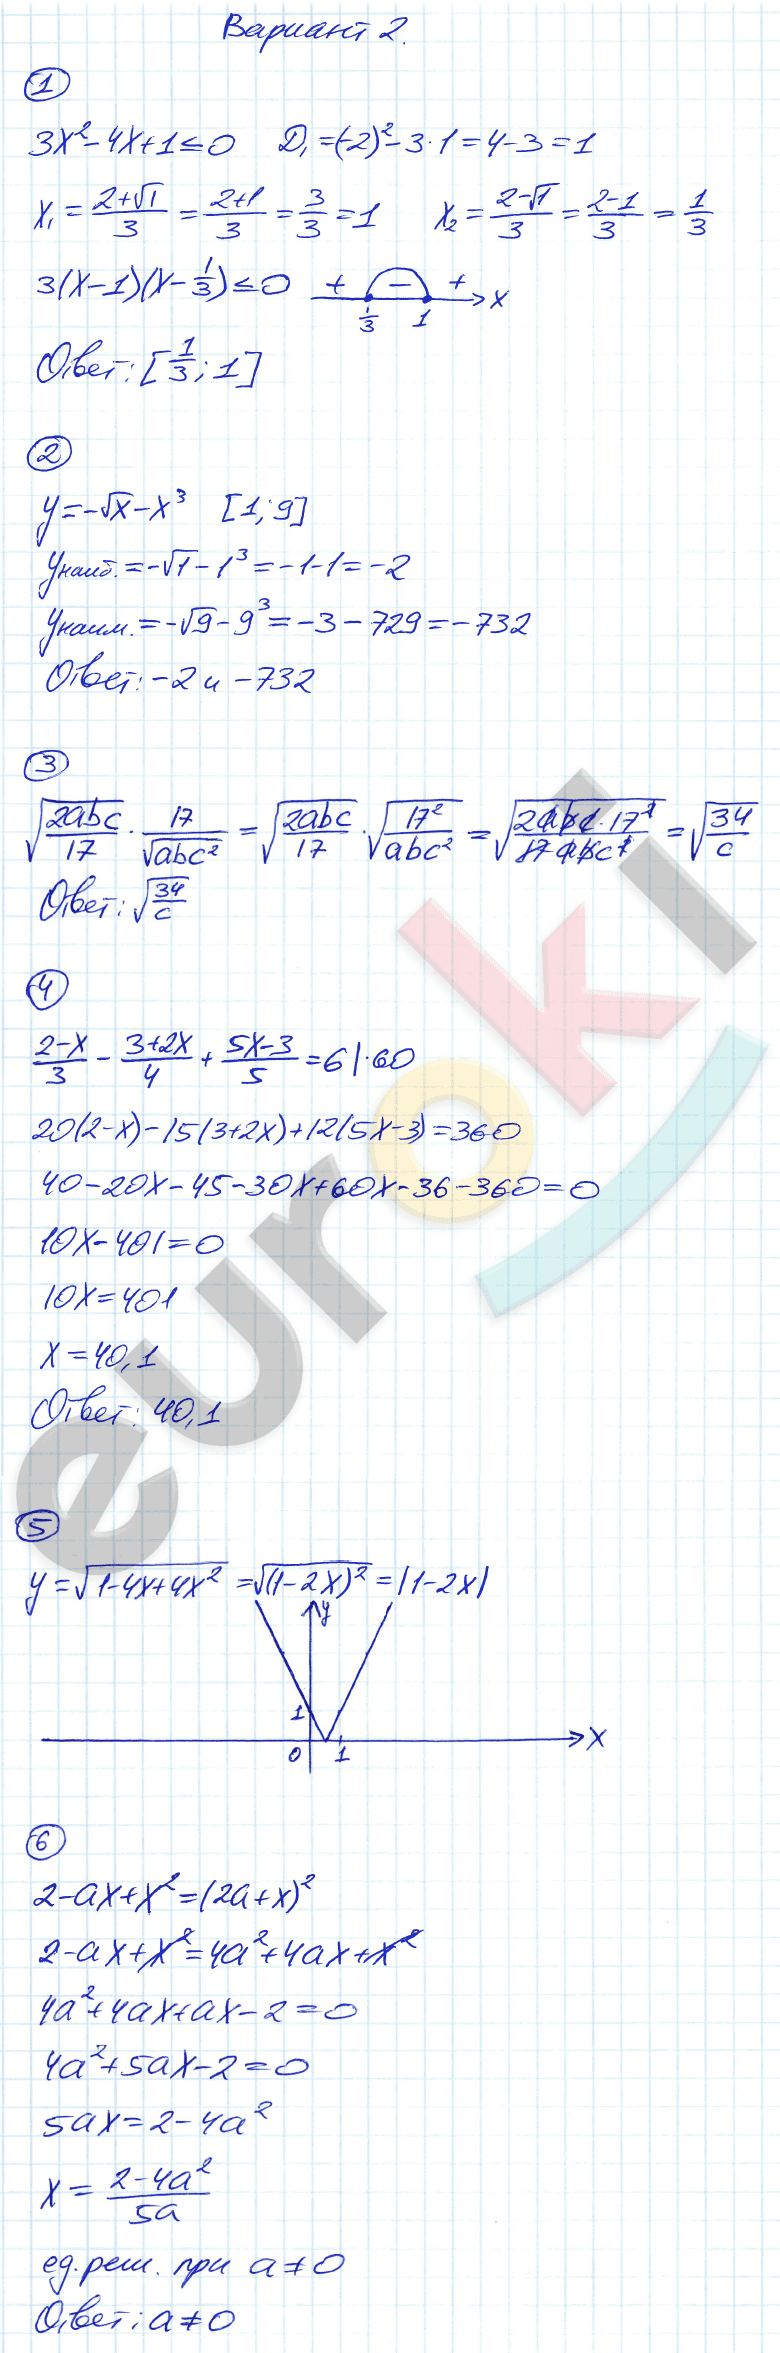 Вариант 2.
①
3x²-4x+1≤0 D₁=(-2)²-3·1=4-3=1
x₁=(2+√1)/3=(2+1)/3=3/3=1 x₂=(2-√1)/3=(2-1)/3=1/3
3(x-1)(x-1/3)≤0 + - + x
1/3 1
Ответ: [1/3; 1]
②
y=-√x-x³ [1; 9]
yнаиб.=-√1-1³=-1-1=-2
yнаим.=-√9-9³=-3-729=-732
Ответ: -2 и -732
③
√(2abc/17)·17/√(abc²)=√(2abc/17)·√(17²/abc²)=√(2abc·17²/17abc²)=√(34/c)
Ответ: √(34/c)
④
(2-x)/3-(3+2x)/4+(5x-3)/5=6|·60
20(2-x)-15(3+2x)+12(5x-3)=360
40-20x-45-30x+60x-36-360=0
10x-401=0
10x=401
x=40,1
Ответ: 40,1
⑤
y=√(1-4x+4x²)=√((1-2x)²)=|1-2x|
y
1
0 1 x
⑥
2-ax+x²=(2a+x)²
2-ax+x²=4a²+4ax+x²
4a²+4ax+ax-2=0
4a²+5ax-2=0
5ax=2-4a²
x=(2-4a²)/5a
ед. реш. при a≠0
Ответ: a≠0
euroki